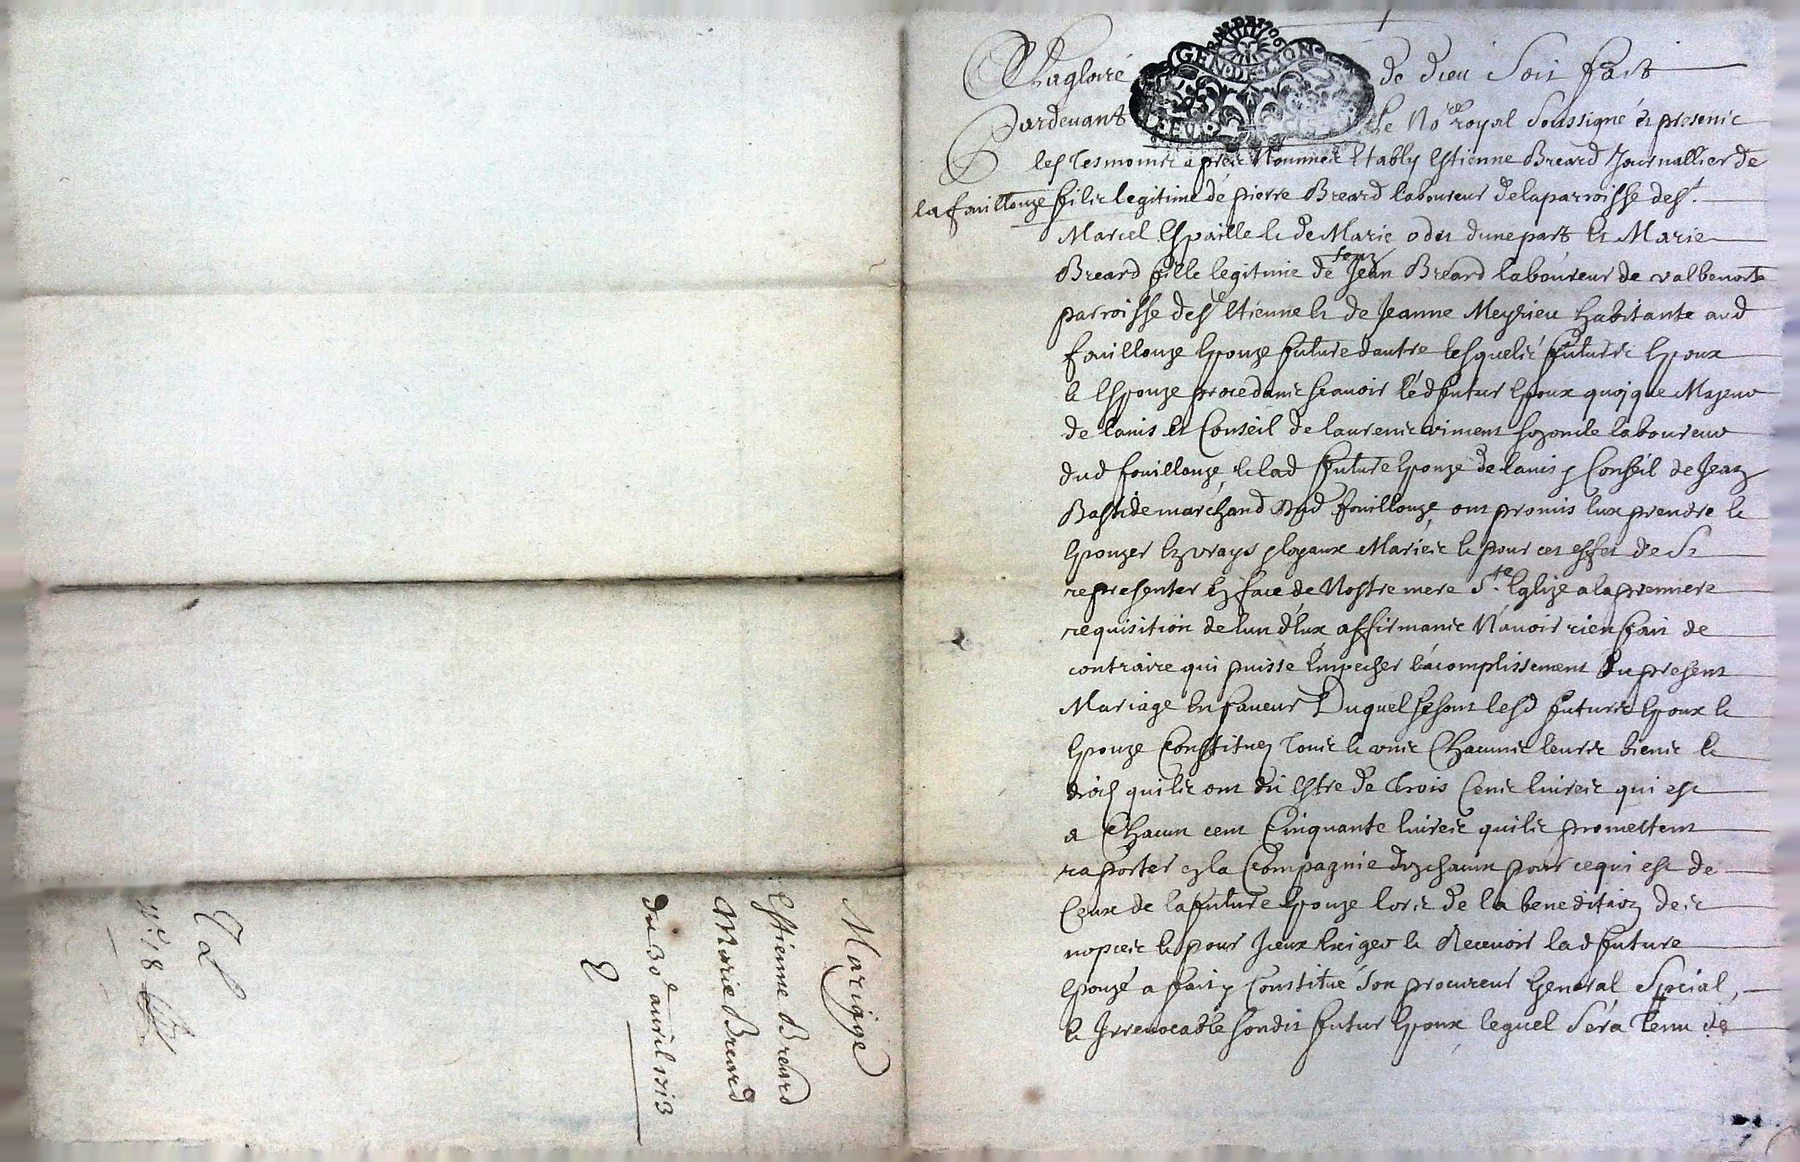 A la gloire de dieu soit fait
Pardevant le No.re royal soussigné et presents
les tesmoins apres Nommes Estably Estienne Breard Journallier de
la fouillouze fils legitime de pierre Breard laboureur de la parroisse de st.
Marcel et de Marie odet dune part Et Marie
Breard fille legitime de feuz Jean Breard laboureur de valbenoite
parroisse de st Etienne Et de Jeanne Meyrieu habitante aud
fouillouze Epouze future dautre lesquels futurs Epoux
Et Espouze procedants scavoir led futur Epoux quoyque Majeur
de lavis Et Conseil de laurens laboureur
dud fouillouze, Et lad future Epouze de lavis & Conseil de Jean
Bastide marchand dud fouillouze, ont promis Eux prendre Et
Epouzer En vrays & loyaux Maries Et pour cet effet de se
representer En face de Nostre mere Ste Eglize a la premiere
requisition de lun dEux affirmants Navoir rien fait de
contraire qui puisse Empecher lacomplissement du present
Mariage En faveur Duquel se sont lesd futurs Epoux Et
Epouze Constitues tous Et uns Chacuns leurs biens Et
droits quils ont dit Estre de Trois Cents livres qui est
a Chacun cent Cinquante livres quils promettent
raporter En la Compagnie dun chacun pour ce qui est de
Ceux de la future Epouze lors de la benediction des
nopces Et pour Iceux Exiger Et Recevoir lad future
Epouze a fait & Constitué son procureur General Special,
Et Irrevocable sondit futur Epoux lequel sera tenu de
Mariage
Estienne Breard
Marie Breard
du 30e avril 1713
N.° 18